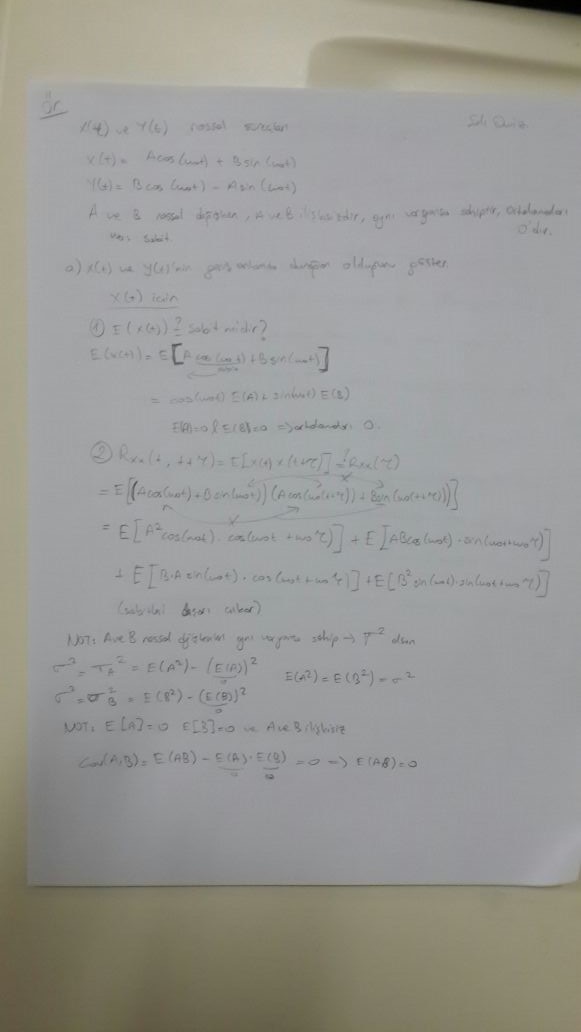 Ör
X(t) ve Y(t) rassal süreçler
X(t) = A cos(ω₀t) + B sin(ω₀t)
Y(t) = B cos(ω₀t) - A sin(ω₀t)
A ve B rassal değişken, A ve B ilişkisizdir, aynı varyansa sahiptir, ortalamaları
0'dır.
sabit.
a) X(t) ve Y(t)'nin geniş anlamda durağan olduğunu göster.
X(t) için
① E(X(t)) ? sabit midir?
E(X(t)) = E[A cos(ω₀t) + B sin(ω₀t)]
= cos(ω₀t) E(A) + sin(ω₀t) E(B)
E(A)=0 E(B)=0 => ortalaması 0.
② Rxx(t, t+τ) = E[X(t) X(t+τ)] = Rxx(τ)
= E[(A cos(ω₀t) + B sin(ω₀t)) (A cos(ω₀(t+τ)) + B sin(ω₀(t+τ)))]
= E[A² cos(ω₀t) · cos(ω₀t + ω₀τ)] + E[AB cos(ω₀t) · sin(ω₀t+ω₀τ)]
+ E[B·A sin(ω₀t) · cos(ω₀t + ω₀τ)] + E[B² sin(ω₀t) · sin(ω₀t+ω₀τ)]
(sabitler dışarı çıkar)
NOT: A ve B rassal değişkenleri aynı varyansa sahip → σ² olsun
σ² = σ_A² = E(A²) - (E(A))² E(A²) = E(B²) = σ²
0
σ² = σ_B² = E(B²) - (E(B))²
0
NOT: E[A]=0 E[B]=0 ve A ve B ilişkisiz
Cov(A,B) = E(AB) - E(A) · E(B) = 0 => E(AB)=0
0 0